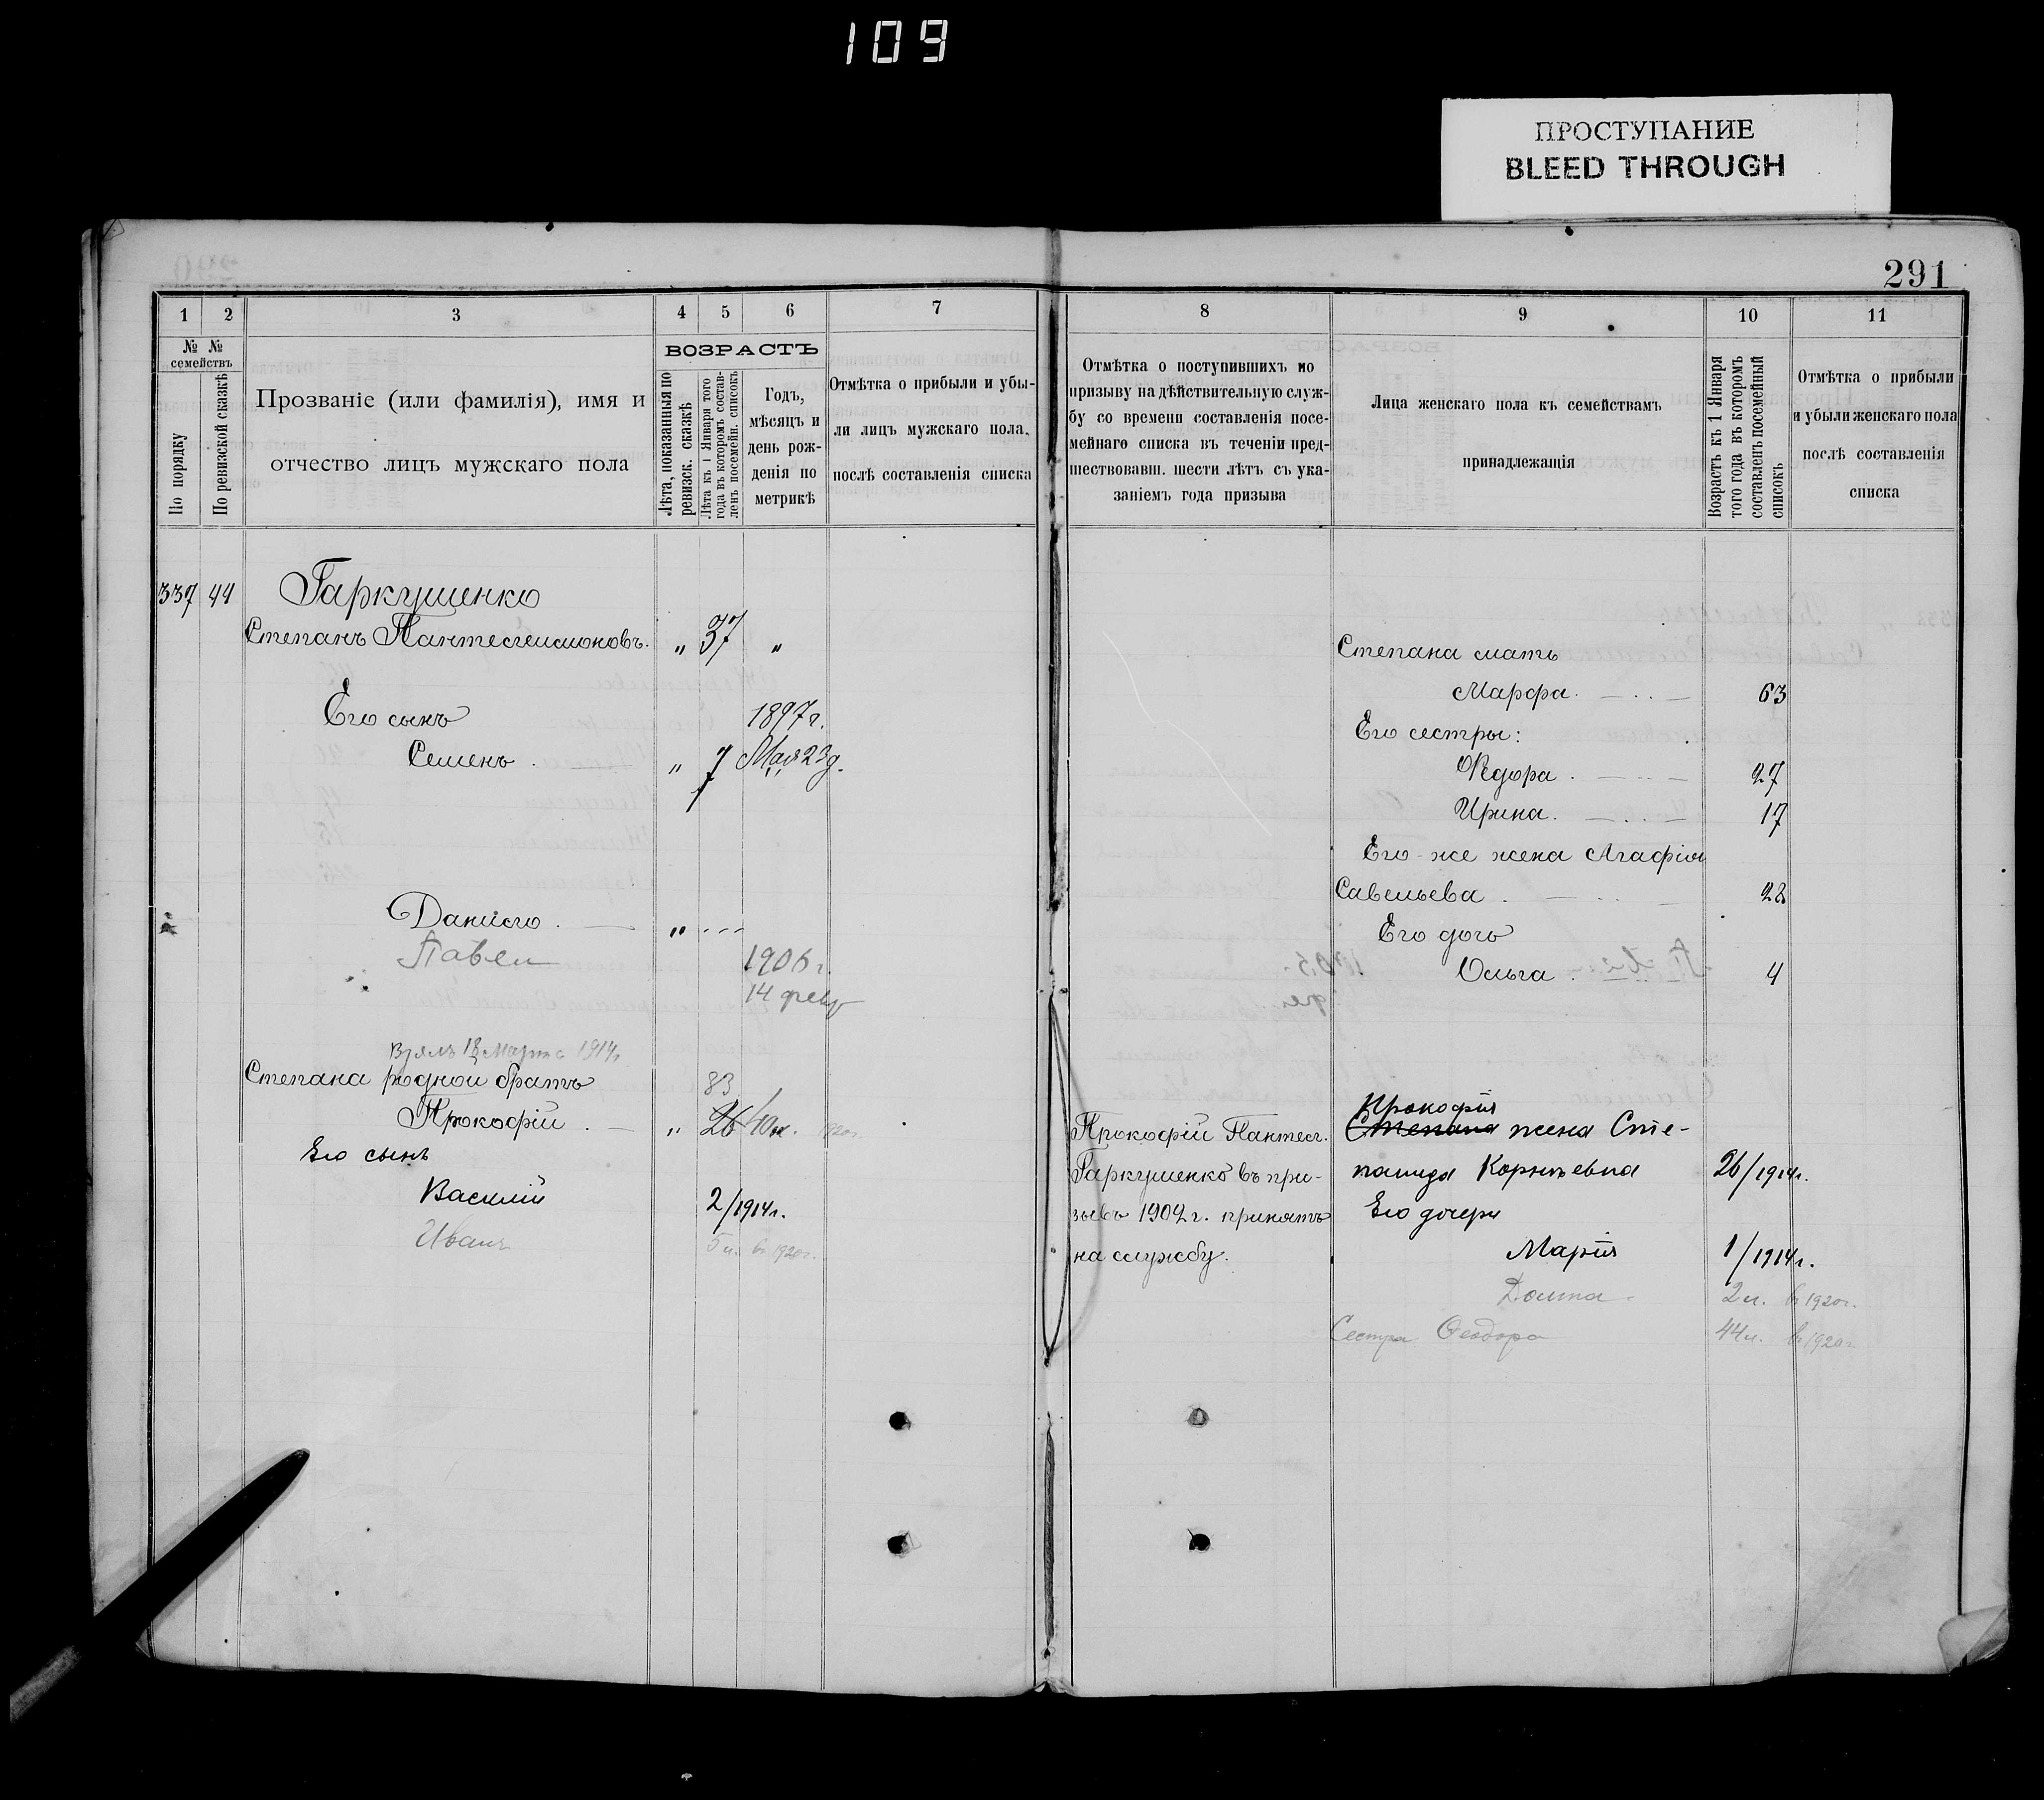 109
ПРОСТУПАНИЕ
BLEED THROUGH
291
1 2 3 4 5 6 7
№ № семействъ
По порядку
По ревизской сказкѣ
Прозваніе (или фамилія), имя и
отчество лицъ мужскаго пола
ВОЗРАСТЪ
Лѣта, показанныя по
ревизск. сказкѣ
Лѣта къ 1 Января того
года въ которомъ состав-
ленъ посемейн. списокъ
Годъ,
мѣсяцъ и
день рож-
денія по
метрикѣ
Отмѣтка о прибыли и убы-
ли лицъ мужскаго пола,
послѣ составленія списка
337 44 Гаркушенко
Степанъ Пантелеимоновъ. „ 37 „
Его сынъ 1897г.
Семенъ. „ 7 Мая 23д.
Даніило. „
Павел 1906г.
14 февр
18 Марта 1914г
Степана родной братъ 83
Прокофій. „ 26
Его сынъ
Василій 2/1914г.
Иванъ 5л. в 1920г.
8 9 10 11
Отмѣтка о поступившихъ по
призыву на дѣйствительную служ-
бу со времени составленія посе-
мейнаго списка въ теченіи пред-
шествовавш. шести лѣтъ съ ука-
заніемъ года призыва
Лица женскаго пола къ семействамъ
принадлежащія
Возрастъ къ 1 Января
того года въ которомъ
составленъ посемейный
списокъ
Отмѣтка о прибыли
и убыли женскаго пола
послѣ составленія
списка
Степана мать
Марфа. 63
Его сестры:
Ѳедора. 27
Ирина. 17
Его-же жена Агафія
Савельева. 28
Его дочь
Ольга. 4
Прокофія
Прокофій Пантел. Степана жена Сте-
Гаркушенко въ при- панида Корнѣевна 26/1914г.
зывъ 1902г. принятъ Его дочери
на службу. Марія 1/1914г.
2л. в 1920г.
Сестра Феодора 44л. в 1920г